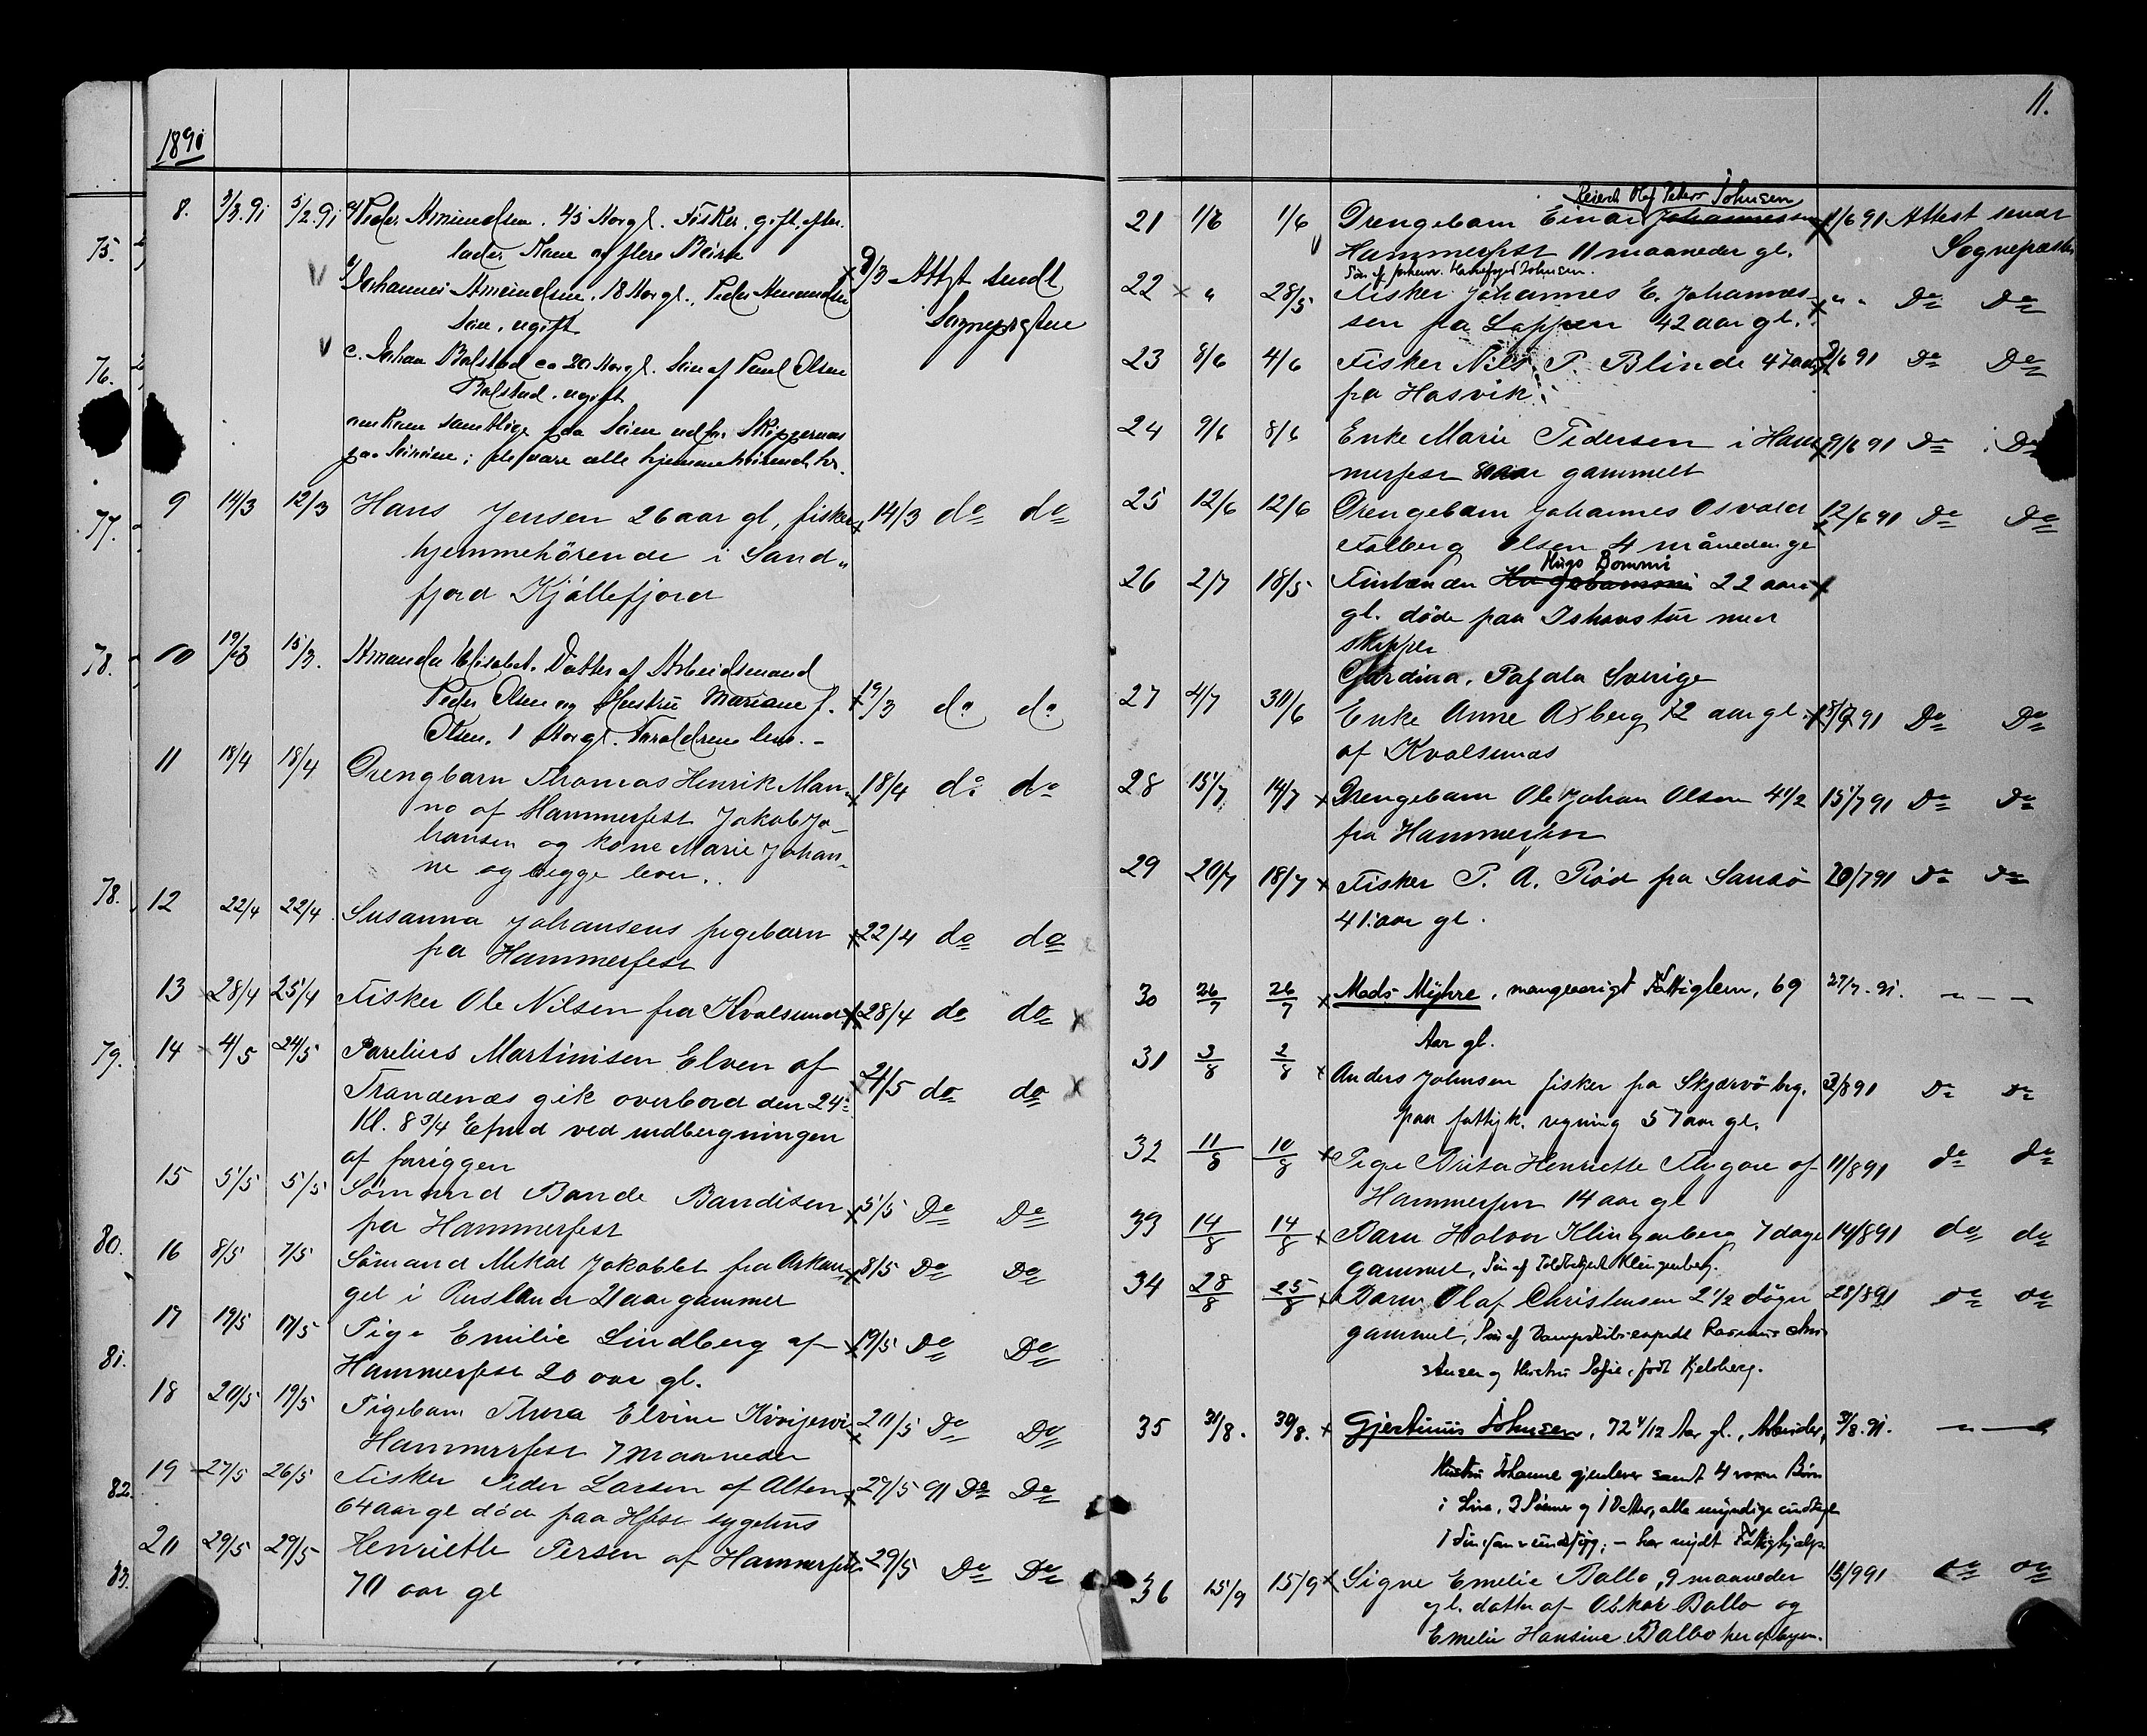 1891
8. 3/3.91 5/2.91 a/ Peder Amundsen. 45 Aar gl. Fisker, gift, efter-
lader Kone og flere Børn
b/ Johannes Amundsen. 18 Aar gl., Peder Amundsen
Søn, ugift
9/3 Attest sendt
Sognepresten
c. Johan Balstad ca 20 Aar gl. Søn af Paul Olsen
Balstad. ugift
omkom samtlige paa Søen
de vare alle hjemmehørende her.
9 14/3 12/3 Hans Jensen 26 aar gl, fisker 14/3 do do
hjemmehörende i Sand„
fjord Kjøllefjord
10 19/3 15/3. Amanda Elisabet. Datter af Arbeidsmand
Peder Olsen og Hustru Mariane f. 19/3 do do
Olsen. 1 Aar gl. Forældrene lever. –
11 18/4 18/4 Drengbarn Thomas Henrik Man- 18/4 do do
no af Hammerfest Jakob Jo-
hansen og kone Marie Johan-
ne og begge lever.
12 22/4 22/4 Susanna Johansens pigebarn 22/4 do do
fra Hammerfest
13 28/4 25/4 Fisker Ole Nilsen fra Kvalsund 28/4 do do
14 4/5 24/5 Parelius Martinisen Elven af
Trandenæs gik overbord den 24de 4/5 do do
Kl. 8 3/4 Efmd ved indbergningen
af fariggen
15 5/5 5/5 Sömand Bande Bandisen 5/5 Do Do
fra Hammerfest
16 8/5 7/5 Sömand Mikal Jakoblet fra Arkan- 8/5 Do Do
gel i Rusland 21 aar gammel
17 19/5 17/5 Pige Emilie Lindberg af 19/5 Do Do
Hammerfest 20 aar gl.
18 20/5 19/5 Pigebarn Thora Elvine 20/5 Do Do
Hammerfest 7 maaneder
19 27/5 26/5 Fisker Peder Larsen af Alten 27/5 91 Do Do
64 aar gl döde paa Hfest sygehus
20 29/5 29/5 Henriette Persen af Hammerfest 29/5 Do Do
70 aar gl
75.
76.
77.
78.
78.
79.
80.
81.
82.
83.
11.
Olaf Peter Johnsen
21 1/6 1/6 Drengebarn Einar Johannessen 1/6 91 Attest sendt
Hammerfest 11 maaneder gl. Sognepresten
Søn af Johnsen.
22 „ 28/5 Fisker Johannes E. Johannes- „ „ Do Do
sen fra Loppen 42 aar gl.
23 8/6 4/6 Fisker Nils P. Blinde 47 aar 8/6 91 Do Do
fra Hasvik
24 9/6 8/6 Enke Marie Pedersen i Ham- 9/6 91 Do Do
merfest aar gammelt
25 12/6 12/6 Drengebarn Johannes Osvald 12/6 91 Do Do
Falberg Olsen 4 måneder gl
Hugo Bommi
26 2/7 18/5 Finlænder 22 aar
gl. döde paa Ishavstur med
skipper
Gardina, Pajala Sverige
27 4/7 30/6 Enke Anne Axberg 72 aar gl. 8/7 91 Do Do
af Kvalsundnæs
28 15/7 14/7 Drengebarn Ole Johan Olsen 4 1/2 15/7 91 Do Do
fra Hammerfest
29 20/7 18/7 Fisker P. A. Röd fra Sandö 20/7 91 Do Do
41 aar gl.
30 26/7 26/7 Mads Myhre, mangeaarigt Fattiglem, 69 27/7.91. — „ —
Aar gl.
31 3/8 2/8 Anders Johnsen fisker fra Skjærvö beg. 3/8 91 Do Do
paa fattigk. regning 57 aar gl.
32 11/8 10/8 Pige Brita Henriette Flygare af 11/8 91 do do
Hammerfest 14 aar gl
33 14/8 14/8 Barn Halvor Klingenberg 7 dage 14/8 91 do do
gammel, Søn af Toldbetjent Klingenberg.
34 28/8 25/8 Barn Olaf Christensen 2 1/2 dögn 28/8 91 do do
gammel, Søn af Dampskibsexpedt Rasmus Chri-
stensen og Hustru Sofie, født Kjelsberg.
35 31/8. 30/8. Gjertinius Johnsen, 72 4/12 Aar gl., Arbeider, 31/8.91. — „ —
Hustru Johanne gjenlever samt 4 voxne Børn
i Live, 3 Sønner og 1 Datter, alle myndige undtagen
1 Søn; — har nydt Fattighjælp.
36 15/9 15/9 Signe Emelie Balbo, 9 maaneder 15/9 91 do do
gl. datter af Oskar Balbo og
Emelie Hansine Balbo her af byen.